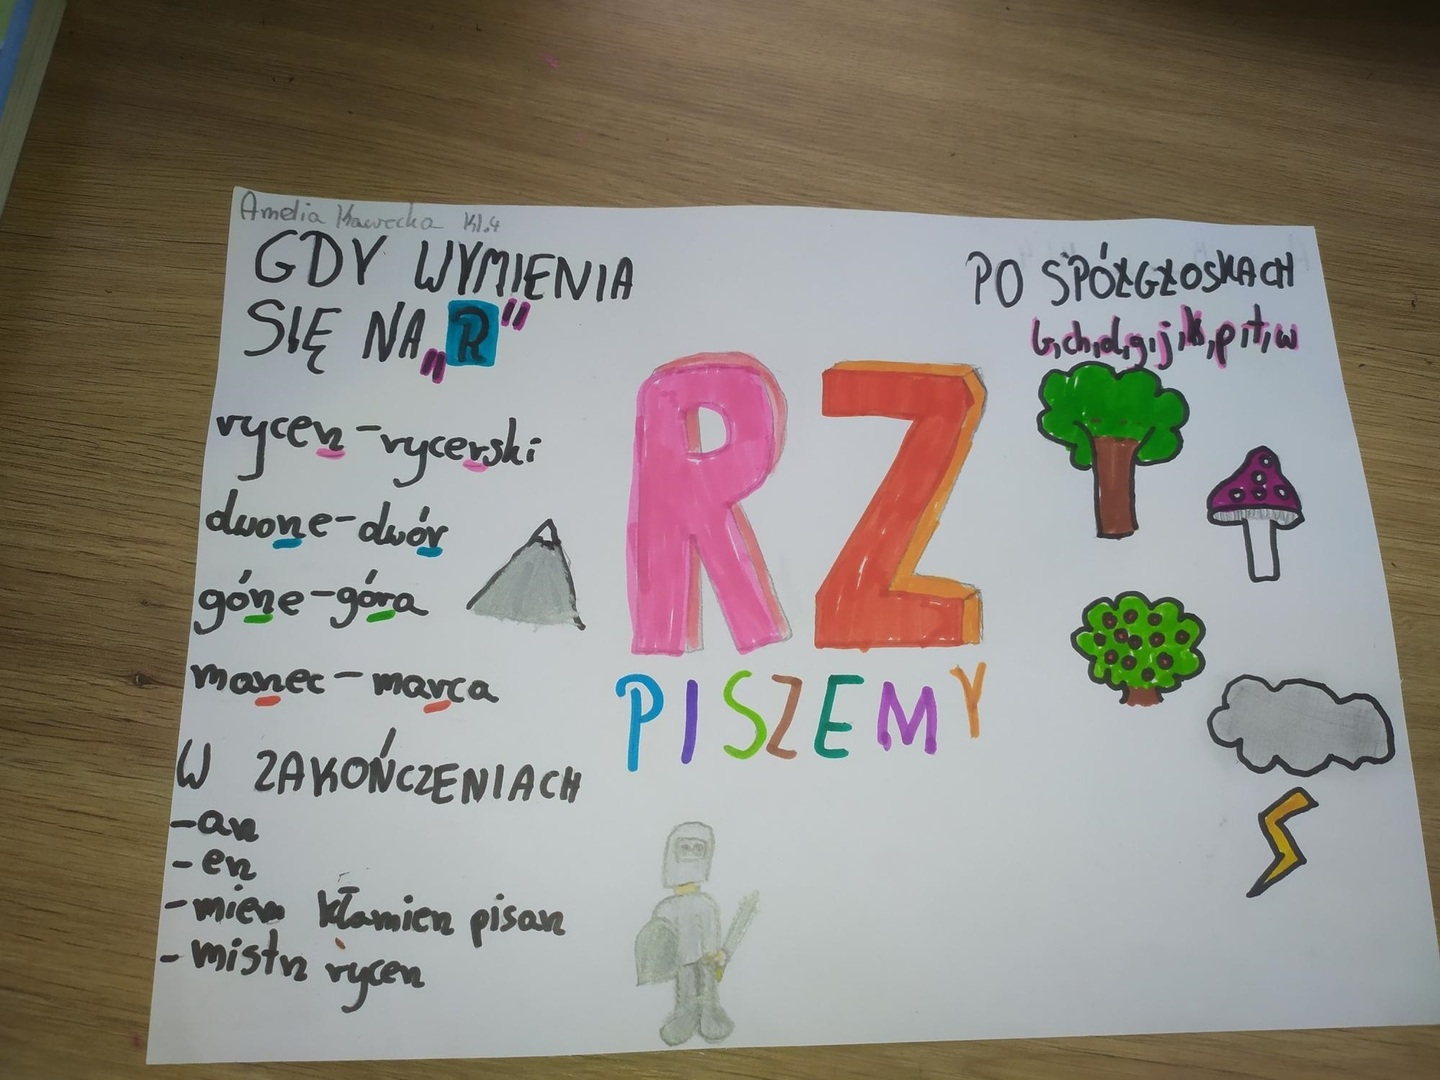 Amelia Kawecka Kl.4
GDY WYMIENIA
SIĘ NA „R"
rycerz-rycerski
dworze-dwór
górze-góra
marzec-marca
W ZAKOŃCZENIACH
-arz
-erz
-mierz kłamierz pisarz
-mistrz rycerz
RZ
PISZEMY
PO SPÓŁGŁOSKACH
b,ch,d,g,j,k,p,t,w